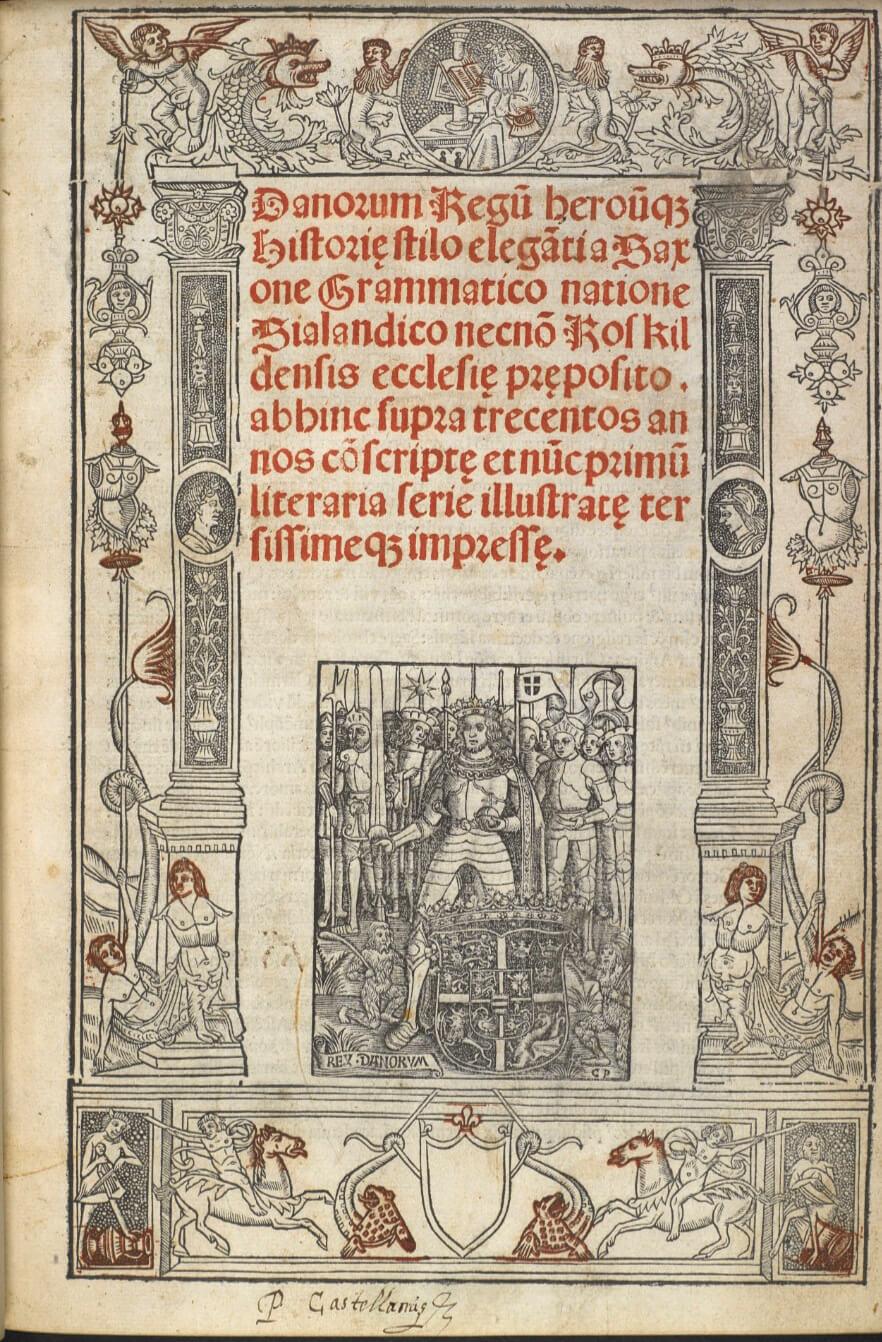 Danorum Regū heroūqꝫ
Historię stilo elegāti a Sax
one Grammatico natione
Sialandico necnō Roskil
densis ecclesię pręposito.
abhinc supra trecentos an
nos cōscriptę et nūc primū
literaria serie illustratę ter
sissimeqꝫ impressę.
REX·DANORVM
CP
P Castellanus